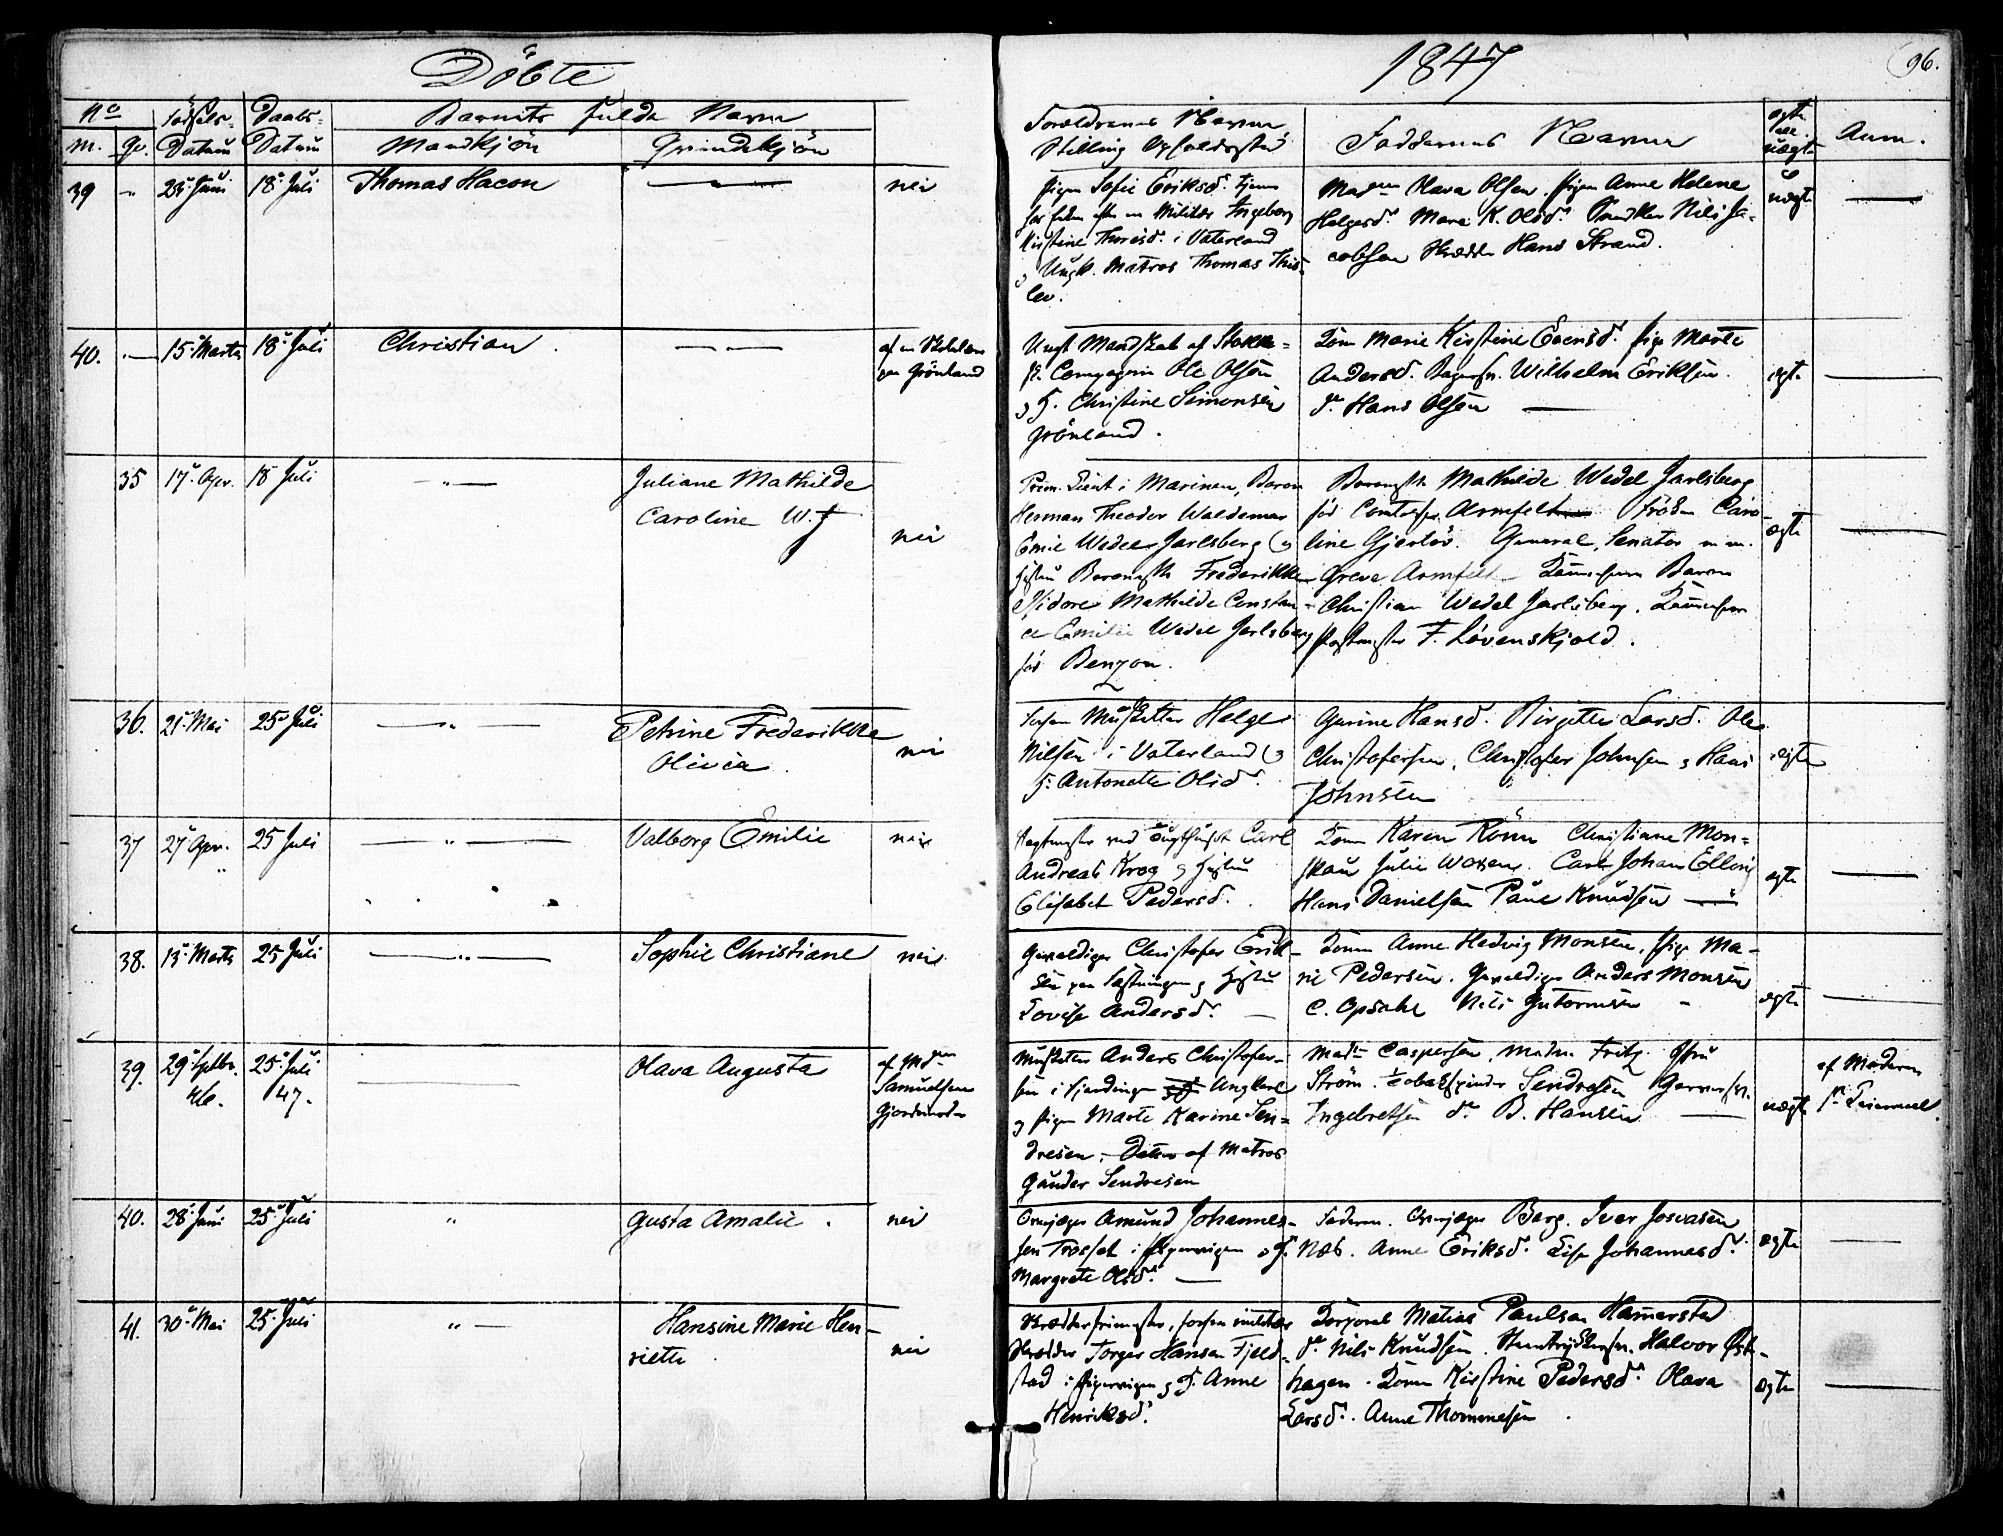 Döbte
1847
96.
No
Fødsels-
Daabs-
Barnets fulde Navn
m. Qv. Datum Datum Mandkjön Qvindekjön
Forældrenes Navne
Stilling Opholdssted
Faddernes Navne
ægte
ell.
uægte
Anm.
39 25 Juni 18 Juli Thomas Hacon nei
Pigen Sofie Eriksd. tjener
Militær Ingeborg
Kirstine Thoresd. i Vaterland
og Ungk. Matros Thomas This-
lev.
Madm Olava Olsen. Pigen Anne Helene
Helgesd. Maren K. Olsd. Snedker Nils Ja-
cobsen Skrædder Hans Strand.
uægte
40. 15 Marts 18 Juli Christian
paa Grönland
Ole Olsen
og H. Christine Simonsen
Grönland.
Kone Marie Kirstine Evensd. Pige Marte
Andersd. Bagersv. Wilhelm Eriksen
do Hans Olsen
ægte
35 17 Apr. 18 Juli Juliane Mathilde
Caroline W. J
nei
Prem. Lieut i Marinen, Baron
Herman Theodor Waldemar
Emil Wedel Jarlsberg og
Hustru Baronesse Frederikke
Isidore Mathilde Constan-
ce Emilie Wedel Jarlsberg
föd Benzon.
Baronesse Mathilde Wedel Jarlsberg
föd Comtesse Armfelt Fröken Caro-
line Gjerlöv. General, Senator m.m.
Greve Armfelt Kammerherre Baron
Christian Wedel Jarlsberg. Kammerherre
Postmester F. Lövenskjold.
ægte
36. 21 Mai 25 Juli Petrine Frederikke
Olivia
nei
Musketter Helge
Nilsen i Vaterland og
H. Antonette Olsd.
Gurine Hansd. Birgitte Larsd. Ole
Christofersen, Christofer Johnsen og Hans
Johnsen
ægte
37 27 Apr. 25 Juli Valborg Emilie nei
Vagtmester ved Tugthuset Carl
Andreas Krog og Hustru
Elisabet Pedersd.
Kone Karen Rönn Christiane Mon-
Julie Carl Johan Ellin
Hans Danielsen Paul Knudsen
ægte
38. 13 Marts 25 Juli Sophie Christiane nei
Gevaldiger Christofer Erik-
sen paa Fæstningen og Hustru
Lovise Andersd.
Konen Anne Hedvig Monsen. Pige Ma-
rie Pedersen. Gevaldiger Anders Monsen
C. Opsahl Nils Gutormsen
ægte
39. 29 Septbr. 25 Juli Olava Augusta
46. 47.
af Mdm
Samuelsen
Gjordemoder
Musketer Anders Christofer-
sen i Fjerdingen
og Pigen Marte Karine Sen-
dresen, Datter af Matros
Gunder Sendresen
Madm Caspersen, Madm. Fritz.
Ström. Tobakspinder Sendresen Garversv.
Ingebretsen do B. Hansen
uægte
af Moderen
40. 28 Juni 25 Juli Gusta Amalie nei
Amund Johannes-
sen Trosset i Pipervigen og H.
Margrete Olsd.
Faderen. Berg. Iver Josvasen
Næs. Anne Eriksd. Lise Johannesd.
ægte
41. 30 Mai 25 Juli Hansine Marie Hen-
riette
nei
Skrædder Torger Hansen Fjeld-
stad i Pipervigen og H. Anne
Henriksd.
Korporal Matias Paulsen Hamersta
do Nils Knudsen. Halvor Öst-
hagen. Konen Kirstine Pedersd. Olava
Larsd. Anne Thommesen
ægte